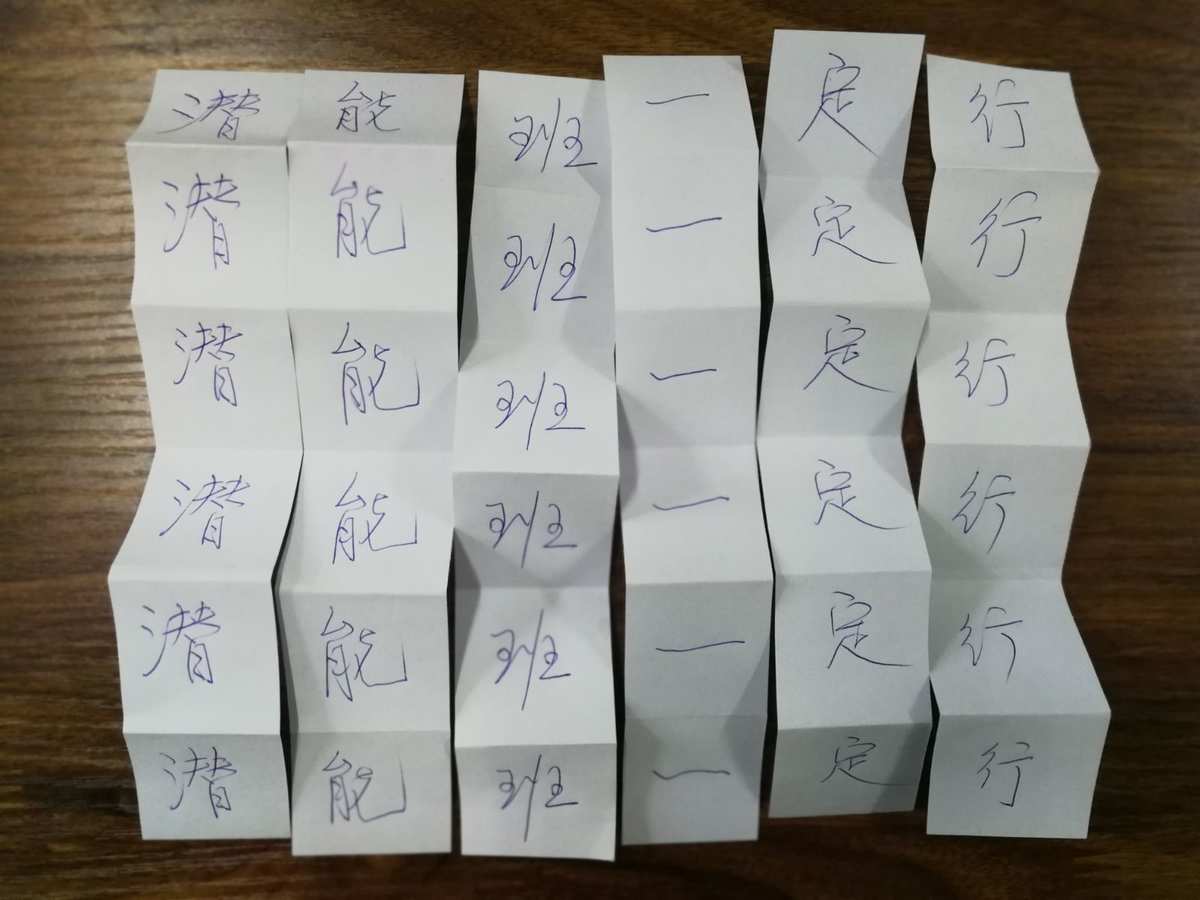 潜能班一定行
潜能班一定行
潜能班一定行
潜能班一定行
潜能班一定行
潜能班一定行